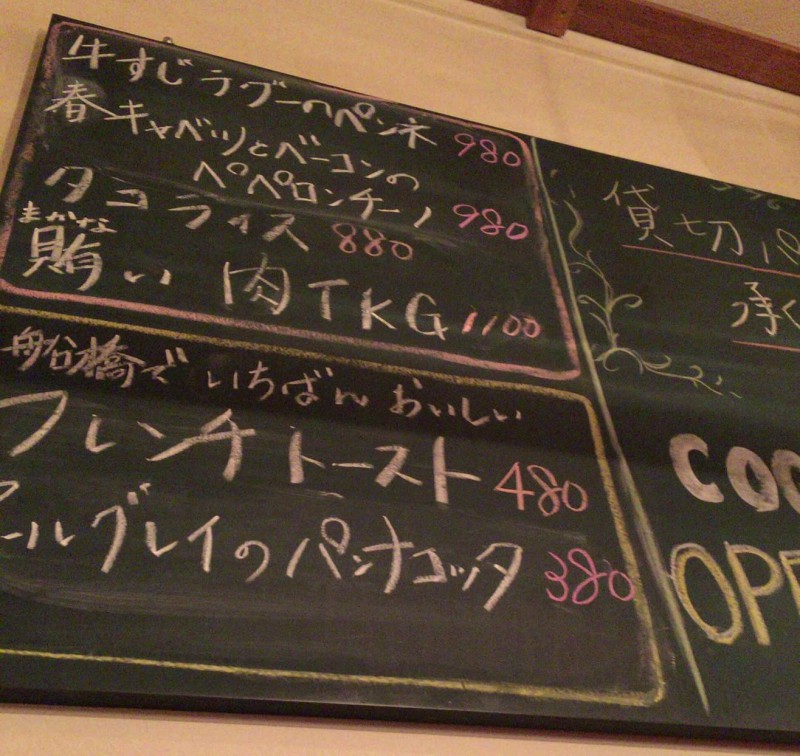 牛すじラグーのペンネ 980
春キャベツとベーコンの
ペペロンチーノ 980
タコライス 880
まかな
賄い 肉TKG 1100
船橋でいちばんおいしい
フレンチトースト 480
ールグレイのパンナコッタ 380
貸切
承く
COO
OPE